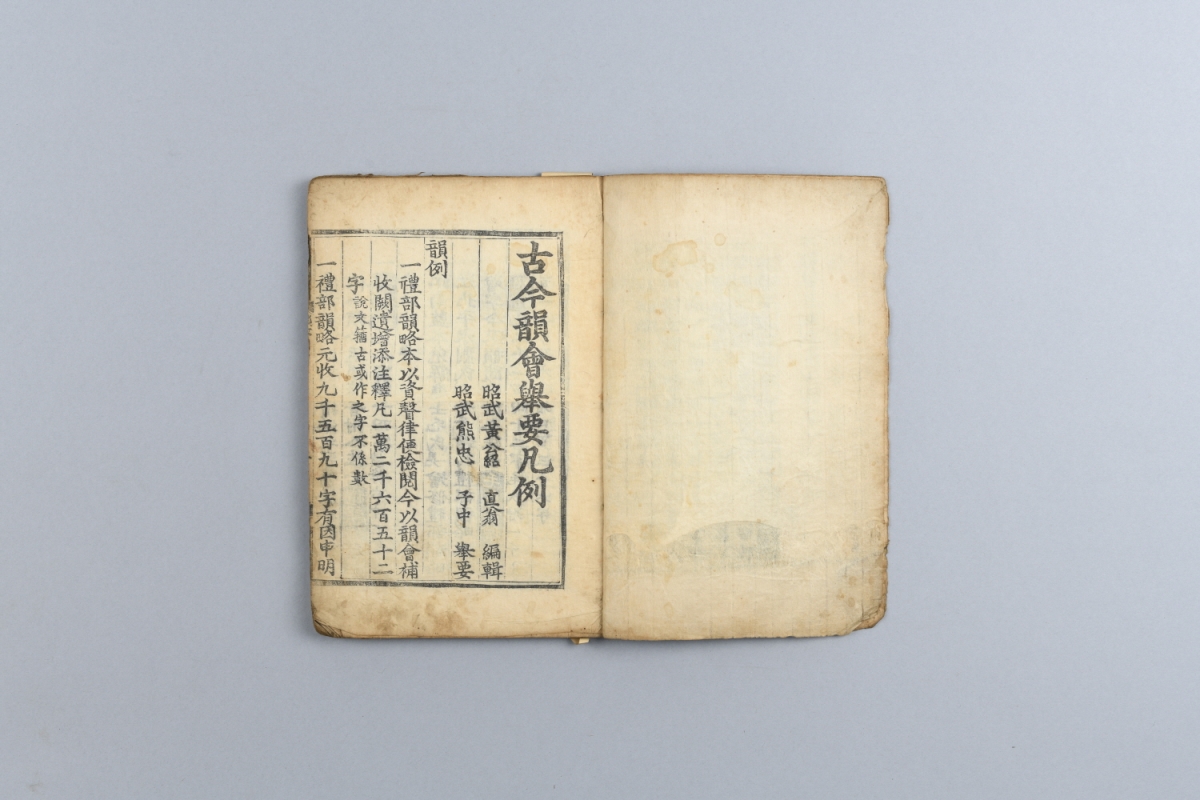 古今韻會舉要凡例
昭武黃公紹 直翁 編輯
昭武熊忠 子中 舉要
韻例
一禮部韻略本以資聲律便檢閱今以韻會補
收闕遺增添注釋凡一萬二千六百五十二
字說文籀古或作之字不係數
一禮部韻略元收九千五百九十字有因申明